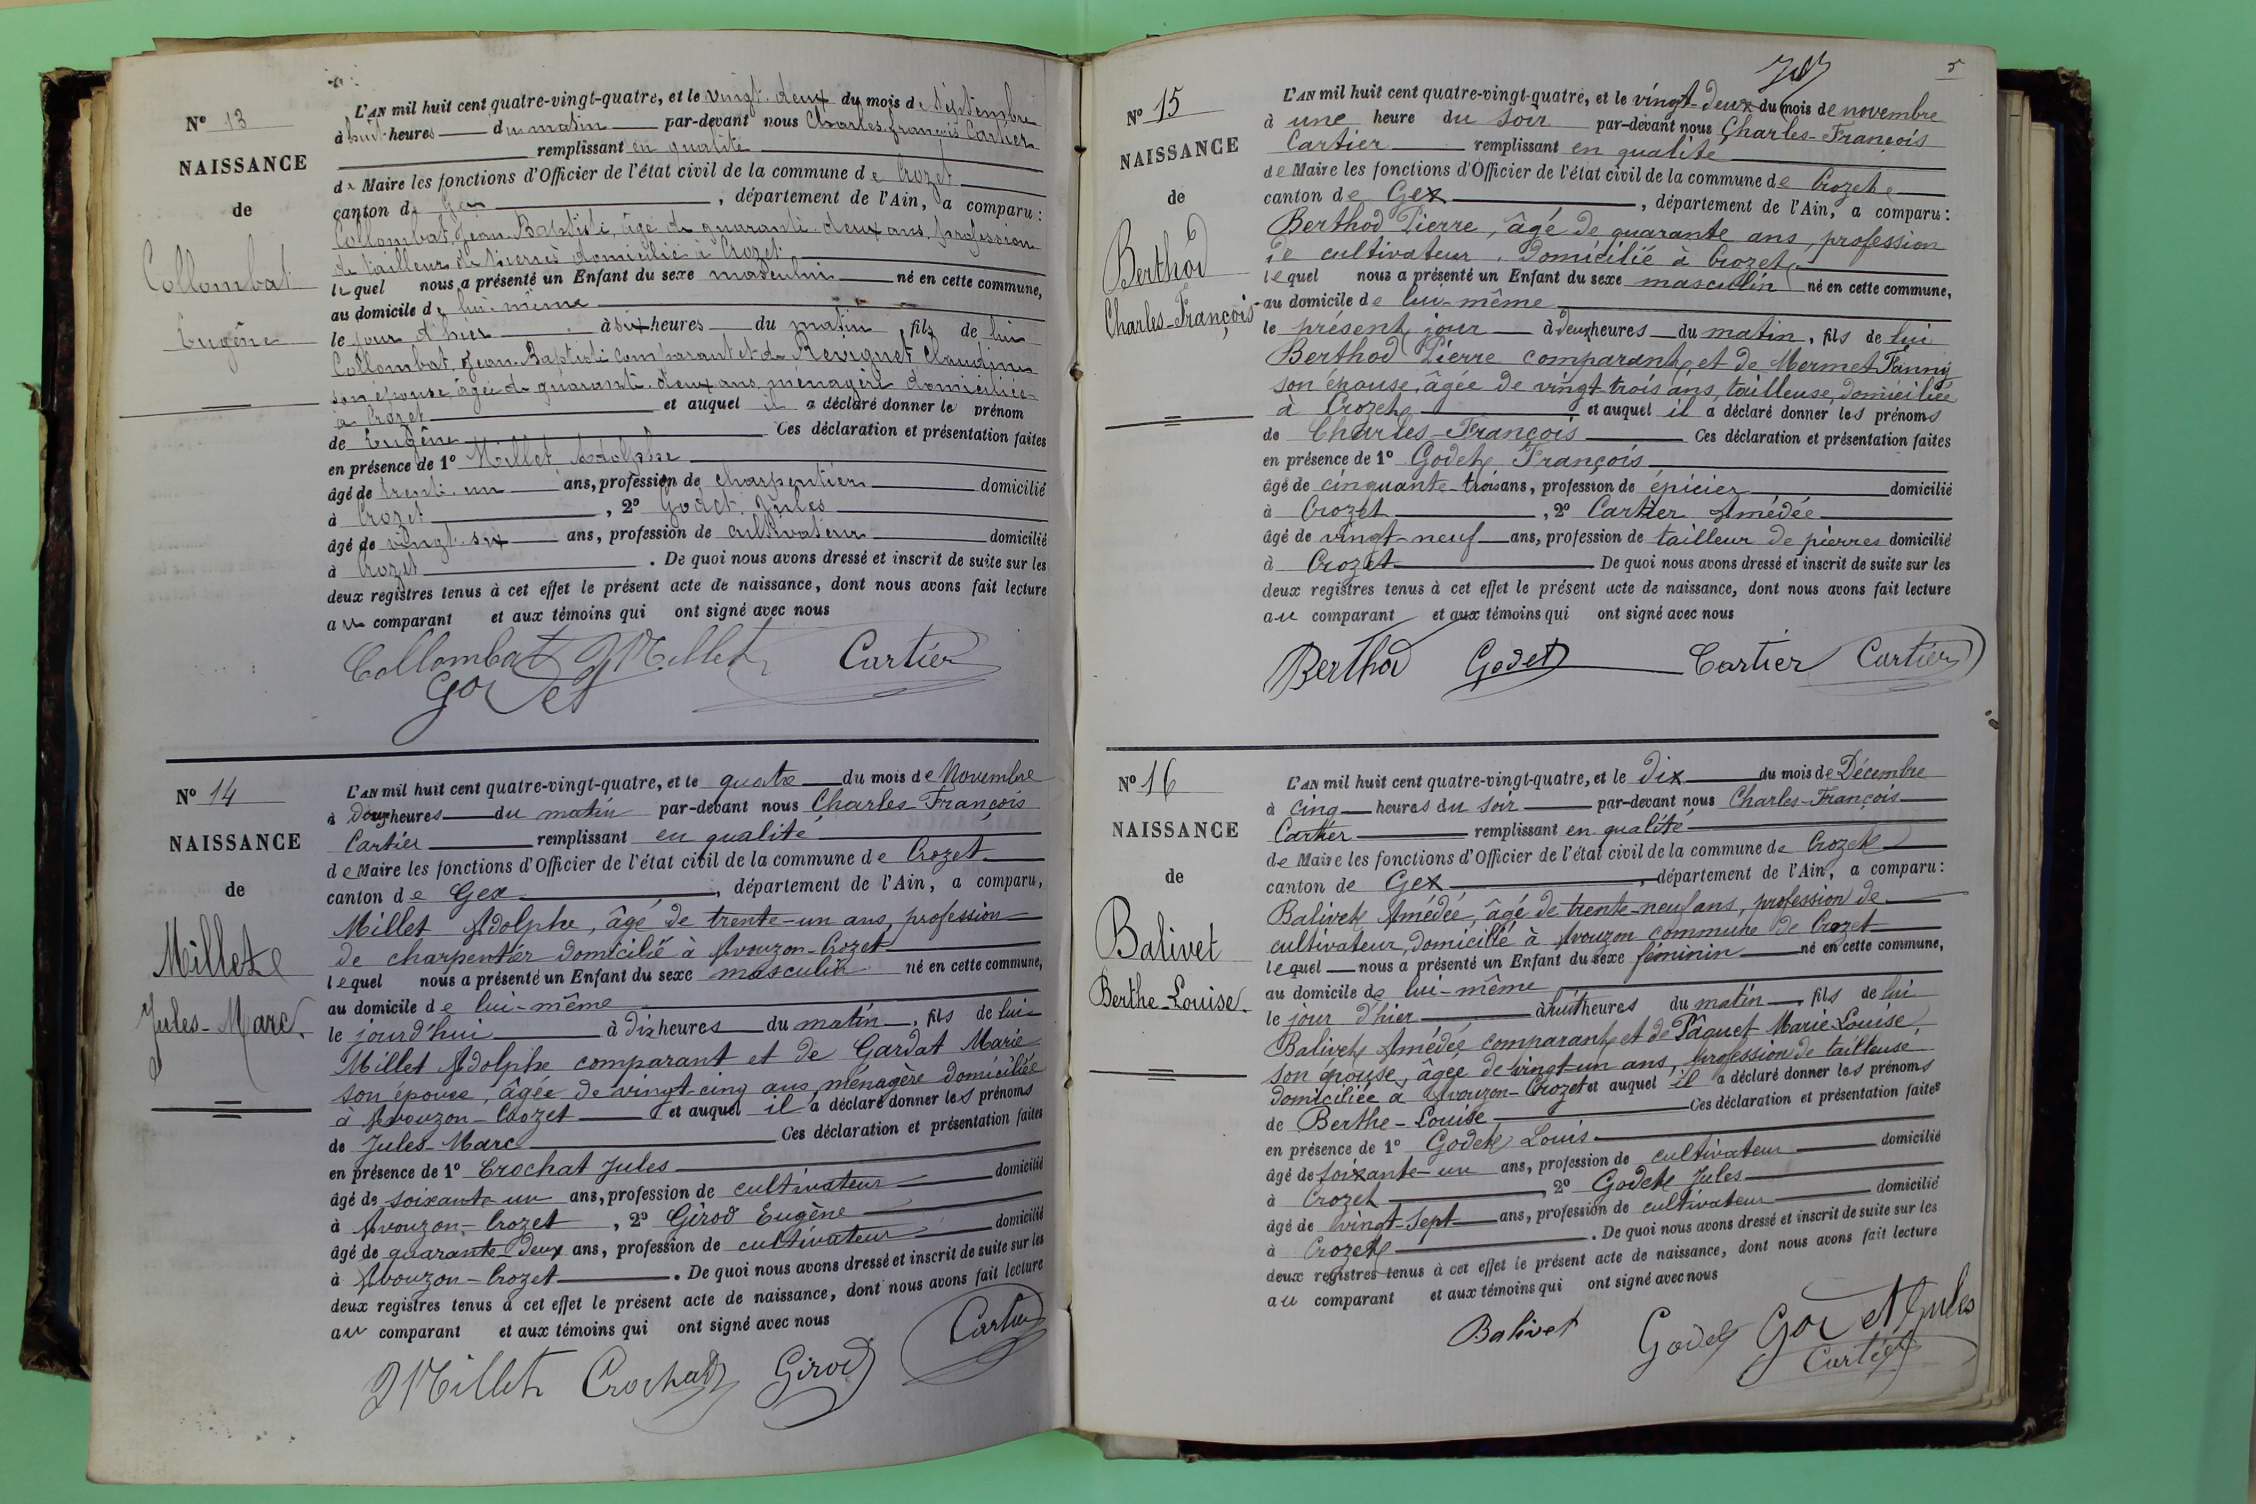 N° 13
NAISSANCE
de
Collombat
Eugène
L'AN mil huit cent quatre-vingt-quatre, et le vingt-deux du mois de Septembre
à huit heures du matin par-devant nous Charles-François Cartier
remplissant en qualité
de Maire les fonctions d'Officier de l'état civil de la commune de Crozet
canton de Gex, département de l'Ain, a comparu:
Collombat Jean-Baptiste, âgé de quarante-deux ans, profession
de tailleur de pierres domicilié à Crozet
lequel nous a présenté un Enfant du sexe masculin né en cette commune,
au domicile de lui-même
le jour d'hier à six heures du matin, fils de lui
Collombat Jean-Baptiste comparant et de Reviguet Claudine
son épouse âgée de quarante-deux ans, ménagère domiciliée
à Crozet et auquel il a déclaré donner le prénom
de Eugène Ces déclaration et présentation faites
en présence de 1° Millet Adolphe
âgé de trente-un ans, profession de charpentier domicilié
à Crozet, 2° Godet Jules
âgé de vingt-six ans, profession de cultivateur domicilié
à Crozet. De quoi nous avons dressé et inscrit de suite sur les
deux registres tenus à cet effet le présent acte de naissance, dont nous avons fait lecture
au comparant et aux témoins qui ont signé avec nous
Collombat Millet Cartier
Godet
N° 14
NAISSANCE
de
Millet
Jules-Marc
L'AN mil huit cent quatre-vingt-quatre, et le quatre du mois de Novembre
à douze heures du matin par-devant nous Charles-François
Cartier remplissant en qualité
de Maire les fonctions d'Officier de l'état civil de la commune de Crozet
canton de Gex, département de l'Ain, a comparu,
Millet Adolphe, âgé de trente-un ans, profession
de charpentier domicilié à Avouzon-Crozet
lequel nous a présenté un Enfant du sexe masculin né en cette commune,
au domicile de lui-même
le jourd'hui à dix heures du matin, fils de lui
Millet Adolphe comparant et de Gardat Marie
son épouse, âgée de vingt-cinq ans, ménagère domiciliée
à Avouzon-Crozet et auquel il a déclaré donner les prénoms
de Jules-Marc Ces déclaration et présentation faites
en présence de 1° Crochat Jules
âgé de soixante-un ans, profession de cultivateur domicilié
à Avouzon-Crozet, 2° Girod Eugène
âgé de quarante-deux ans, profession de cultivateur domicilié
à Avouzon-Crozet. De quoi nous avons dressé et inscrit de suite sur les
deux registres tenus à cet effet le présent acte de naissance, dont nous avons fait lecture
au comparant et aux témoins qui ont signé avec nous
Millet Crochat Girod Cartier
5
N° 15
NAISSANCE
de
Berthod
Charles-François
L'AN mil huit cent quatre-vingt-quatre, et le vingt-deux du mois de novembre
à une heure du soir par-devant nous Charles-François
Cartier remplissant en qualité
de Maire les fonctions d'Officier de l'état civil de la commune de Crozet
canton de Gex, département de l'Ain, a comparu:
Berthod Pierre, âgé de quarante ans, profession
de cultivateur, domicilié à Crozet
lequel nous a présenté un Enfant du sexe masculin né en cette commune,
au domicile de lui-même
le présent jour à deux heures du matin, fils de lui
Berthod Pierre comparant et de Mermet Fanny
son épouse, âgée de vingt-trois ans, tailleuse, domiciliée
à Crozet, et auquel il a déclaré donner les prénoms
de Charles-François Ces déclaration et présentation faites
en présence de 1° Godet François
âgé de cinquante-trois ans, profession de épicier domicilié
à Crozet, 2° Cartier Amédée
âgé de vingt-neuf ans, profession de tailleur de pierres domicilié
à Crozet De quoi nous avons dressé et inscrit de suite sur les
deux registres tenus à cet effet le présent acte de naissance, dont nous avons fait lecture
au comparant et aux témoins qui ont signé avec nous
Berthod Godet Cartier Cartier
N° 16
NAISSANCE
de
Balivet
Berthe-Louise
L'AN mil huit cent quatre-vingt-quatre, et le dix du mois de Décembre
à cinq heures du soir par-devant nous Charles-François
Cartier remplissant en qualité
de Maire les fonctions d'Officier de l'état civil de la commune de Crozet
canton de Gex, département de l'Ain, a comparu:
Balivet Amédée, âgé de trente-neuf ans, profession de
cultivateur, domicilié à Avouzon commune de Crozet
lequel nous a présenté un Enfant du sexe féminin né en cette commune,
au domicile de lui-même
le jour d'hier à huit heures du matin, fils de lui
Balivet Amédée comparant et de Pâquet Marie-Louise,
son épouse, âgée de vingt-un ans, profession de tailleuse
domiciliée à Avouzon-Crozet et auquel il a déclaré donner les prénoms
de Berthe-Louise Ces déclaration et présentation faites
en présence de 1° Godet Louis
âgé de soixante-un ans, profession de cultivateur domicilié
à Crozet, 2° Godet Jules
âgé de vingt-sept ans, profession de cultivateur domicilié
à Crozet. De quoi nous avons dressé et inscrit de suite sur les
deux registres tenus à cet effet le présent acte de naissance, dont nous avons fait lecture
au comparant et aux témoins qui ont signé avec nous
Balivet Godet Godet Jules
Cartier